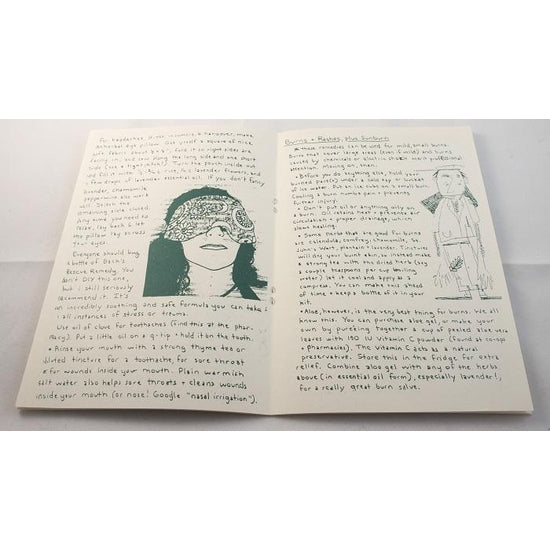 For headaches, stress, insomnia, & hangover, make
an herbal eye pillow. Get yourself a square of nice
soft fabric about
Fold it so right sides are
facing in and sew along the long side and one short
side (in a tight stitch). Turn the pouch inside out
and fill it with rice, lavender flowers, and
a few drops of lavender essential oil. If you don't fancy
lavender, chamomile
peppermint also work
well. Stitch the
remaining side closed.
Any time you need to
relax, lay back & let
the pillow lay across
your eyes.
Everyone should buy
a bottle of Bach's
Rescue Remedy. You
can't DIY this one,
but i still seriously
recommend it. It's
an incredibly soothing and safe formula you can take
in all instances of stress or trauma.
Use oil of clove for toothaches (find this at the phar-
macy). Put a little oil on a q-tip + hold it on the tooth.
• Rinse your mouth with a strong thyme tea or
diluted tincture for a toothache, for sore throat
+ for wounds inside your mouth. Plain warmish
salt water also helps sore throats + cleans wounds
inside your mouth (or nose! Google "nasal irrigation").
Burns + Rashes, plus Sunburn
these remedies can be used for mild, small burns.
Burns that cover large areas (even if mild) and burns
caused by chemicals or electric shock merit professional
attention. Moving on, then.
• Before you do anything else, hold your
burned part(s) under a cold tap or bowl
of ice water. Put an ice cube on a small burn.
Cooling a burn numbs pain + prevents
further injury.
• Don't put oil or anything oily on
a burn. Oil retains heat + prevents air
circulation + proper drainage, which
slows healing.
• Some herbs that are good for burns
are calendula, comfrey, chamomile, St.
John's Wort, plantain + lavender. Tinctures
will dry your burnt skin, so instead make
a strong tea with the dried herb (say
a couple teaspoons per cup boiling
water) let it cool and apply as a
compress. You can make this ahead
of time + keep a bottle of it in your
kit.
• Aloe, however, is the very best thing for burns. We all
know this. You can purchase aloe gel, or make your
own by pureeing together a cup of peeled aloe vera
leaves with 150 IU vitamin C powder (found at co-op
+ pharmacies). The vitamin C acts as a natural
preservative. Store this in the fridge for extra
relief. Combine aloe gel with any of the herbs
above (in essential oil form), especially lavender!,
for a really great burn salve.